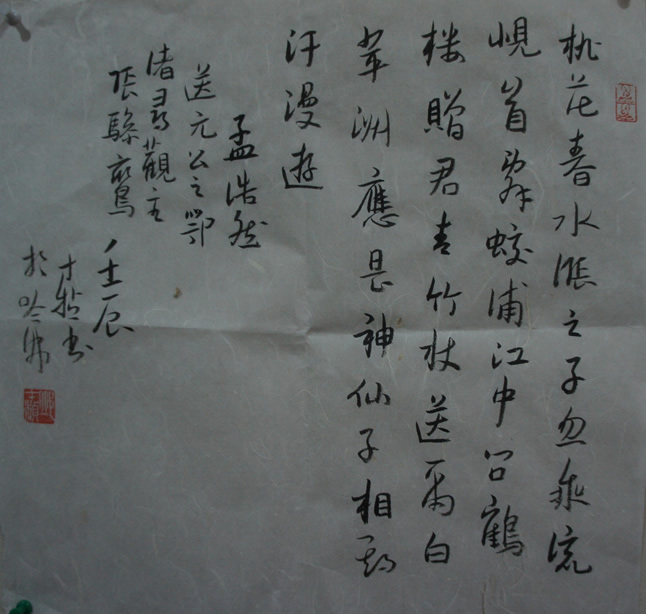 桃花春水漲之子忽乘流
峴首辞蛟浦江中问鶴
楼贈君青竹杖送爾白
苹洲應是神仙子相期
汗漫遊
孟浩然
送元公之鄂
渚尋觀主
張驂鸞
壬辰
书
於